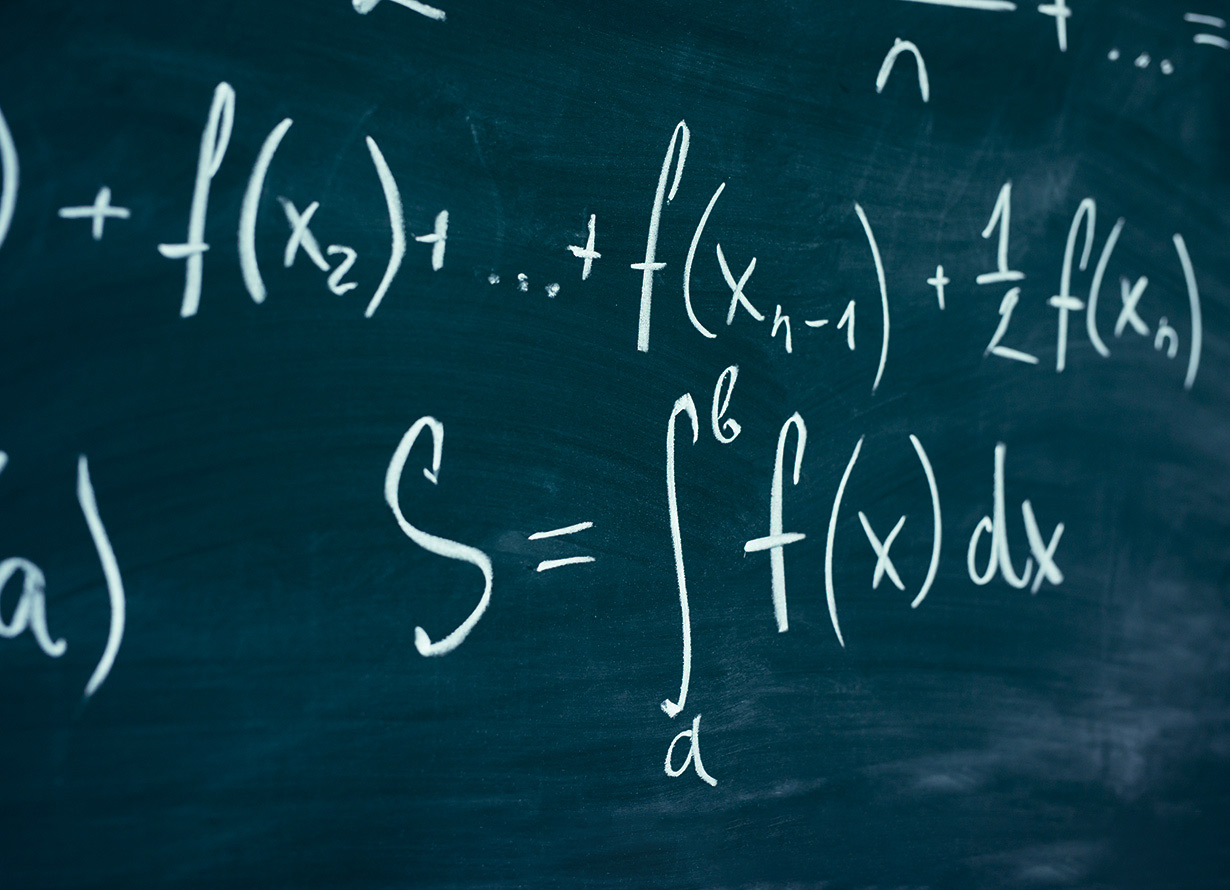 n + ... =
) + f(x₂) + ... + f(xₙ₋₁) + 1/2 f(xₙ)
a) S = ∫ₐᵇ f(x) dx